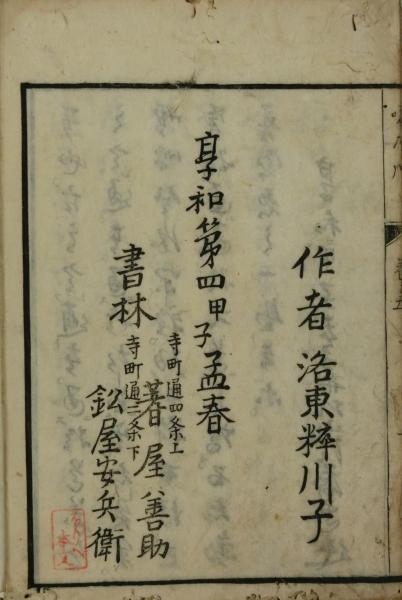 作者 洛東粹川子
享和第四甲子孟春
書林
寺町通四条上
蓍屋善助
寺町通三条下
鈆屋安兵衛